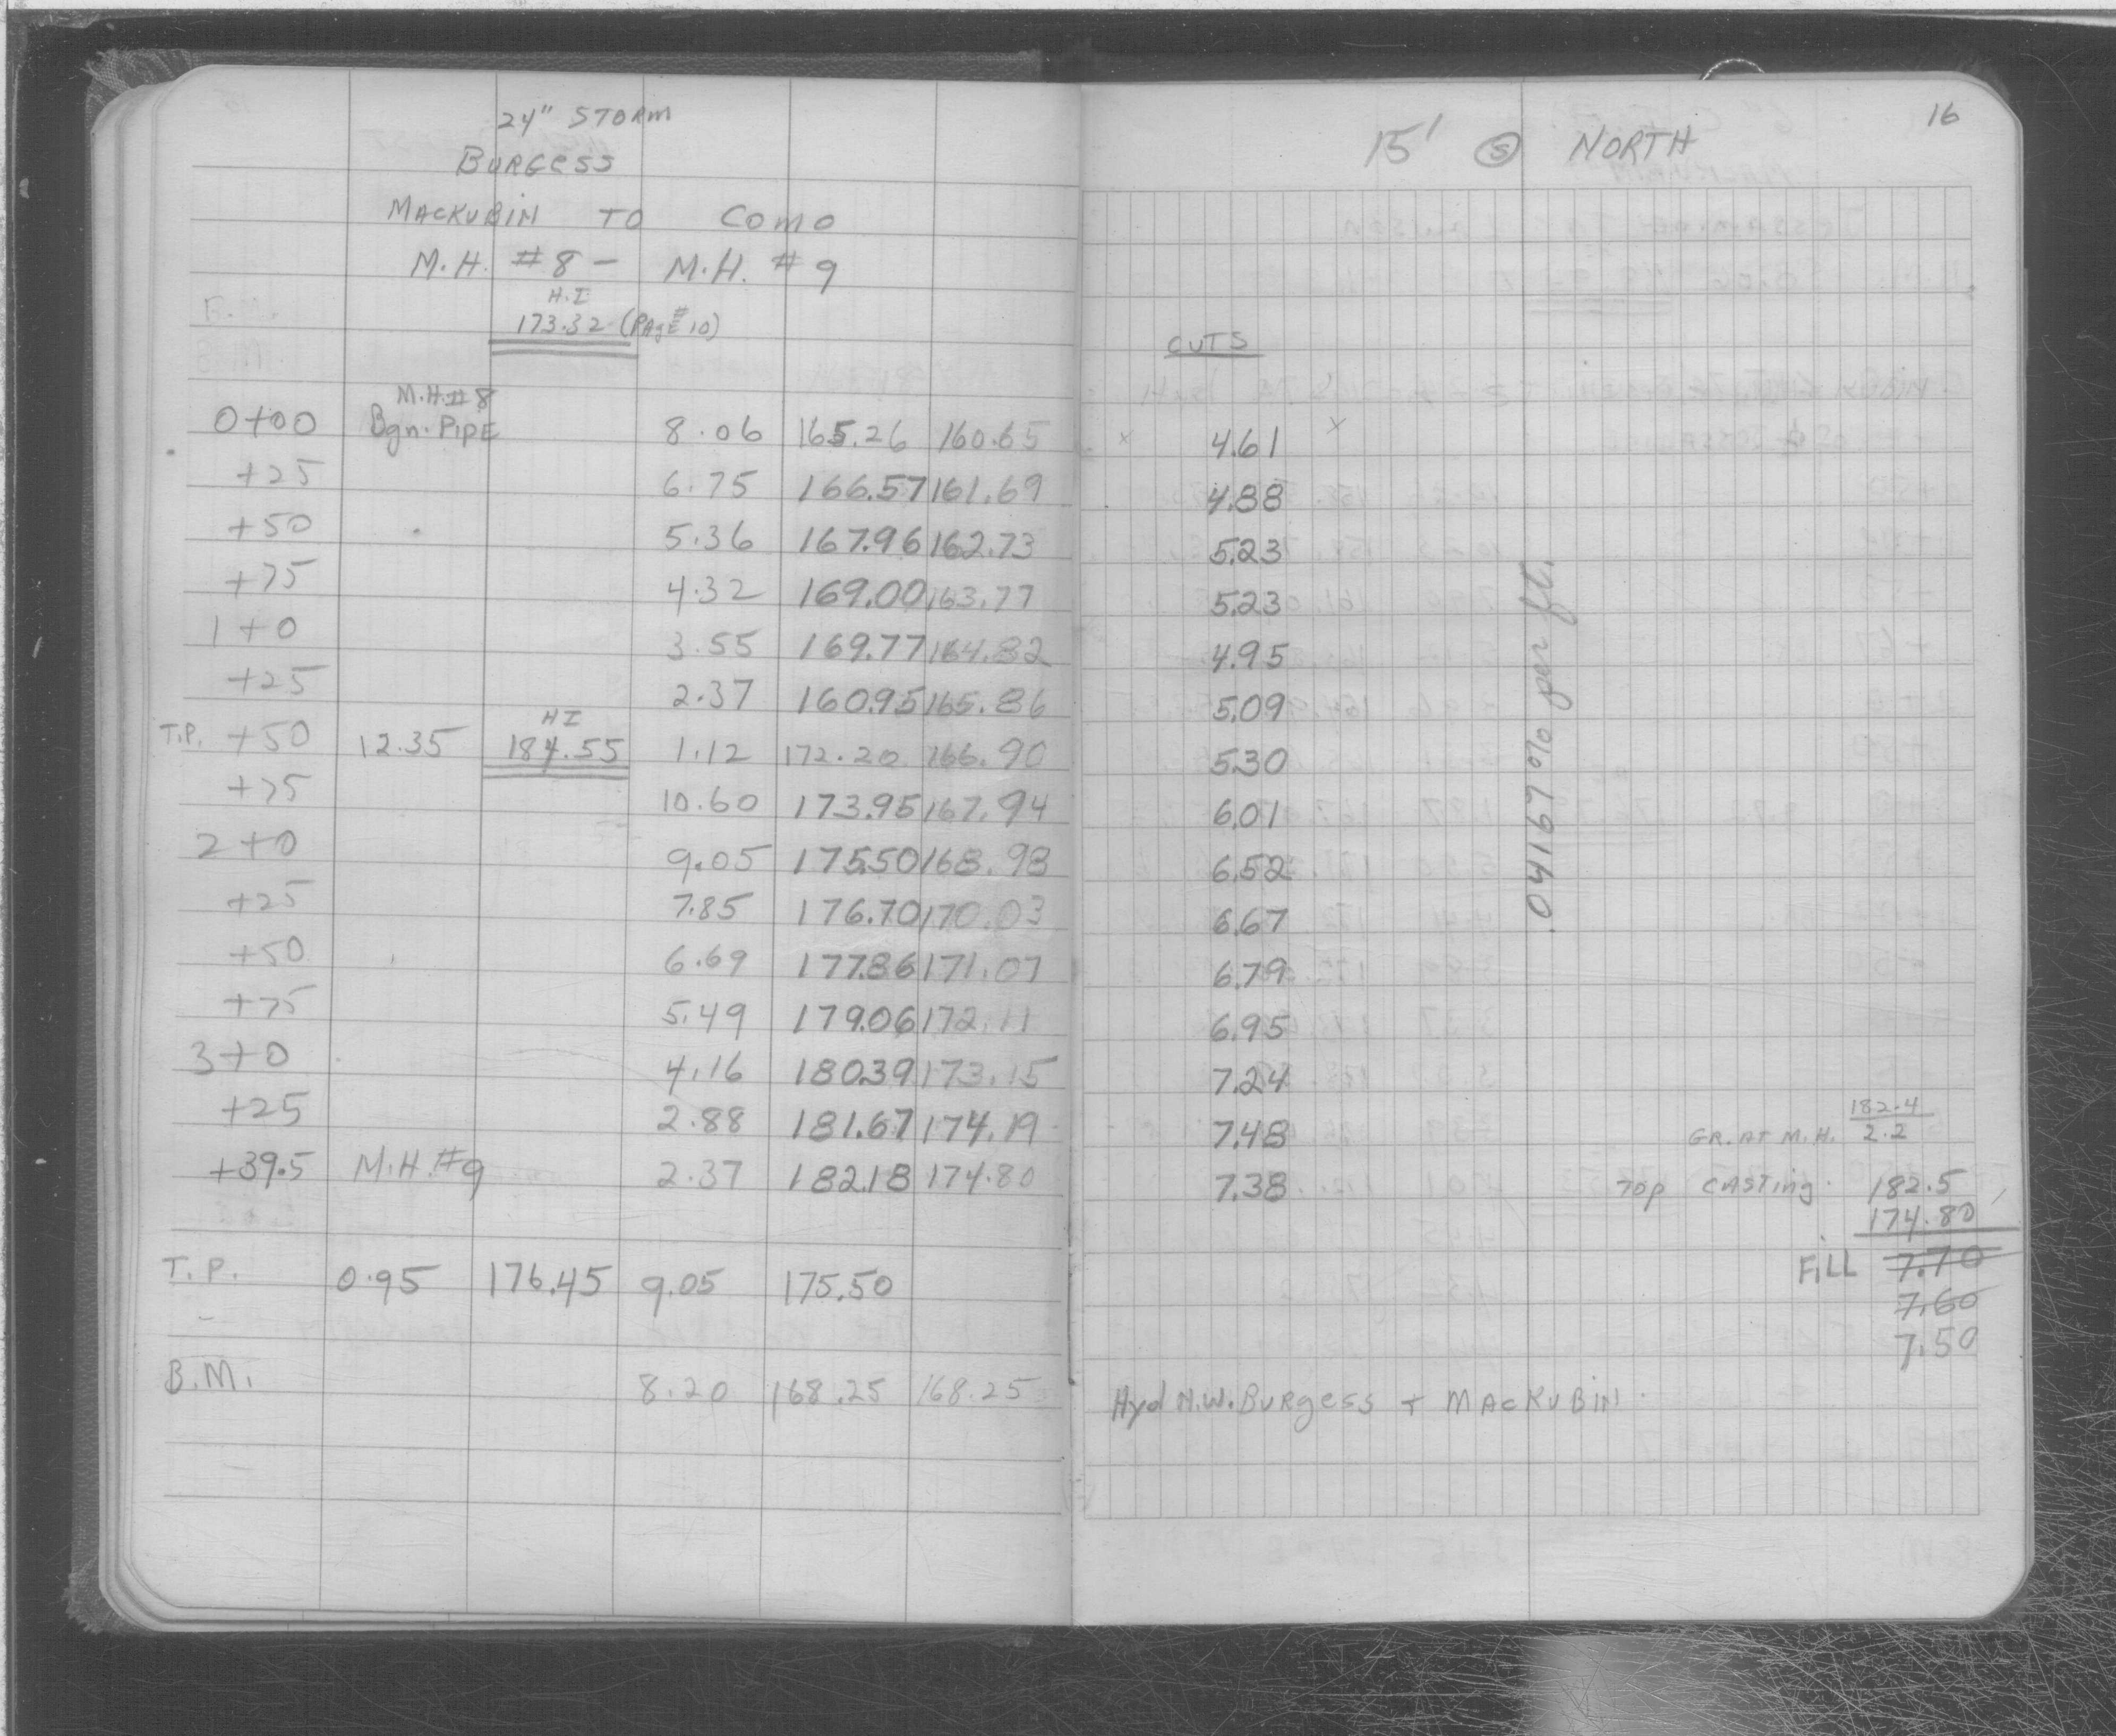 24" STORM
BURGESS
MACKUBIN TO COMO
M.H. #8 - M.H. #9
H.I
173.32 (PAGE #10)
M.H.#8
0+00 Bgn. PIPE 8.06 165.26 160.65
+25 6.75 166.57 161.69
+50 5.36 167.96 162.73
+75 4.32 169.00 163.77
1+0 3.55 169.77 164.82
+25 2.37 160.95 165.86
HI
T.P. +50 12.35 184.55 1.12 172.20 166.90
+75 10.60 173.95 167.94
2+0 9.05 175.50 168.98
+25 7.85 176.70 170.03
+50 6.69 177.86 171.07
+75 5.49 179.06 172.11
3+0 4.16 180.39 173.15
+25 2.88 181.67 174.19
+39.5 M.H.#9 2.37 182.18 174.80
T.P. 0.95 176.45 9.05 175.50
B.M. 8.20 168.25 168.25
16
15' Ⓢ NORTH
CUTS
x 4.61 x
4.88
5.23
5.23
4.95
5.09
5.30
6.01
6.52
6.67
6.79
6.95
7.24
7.48
7.38
.04167% per ft.
182.4
GR. AT M.H. 2.2
TOP CASTING. 182.5
174.80
FILL 7.70
7.60
7.50
Hyd N.W. BURGESS + MACKUBIN.